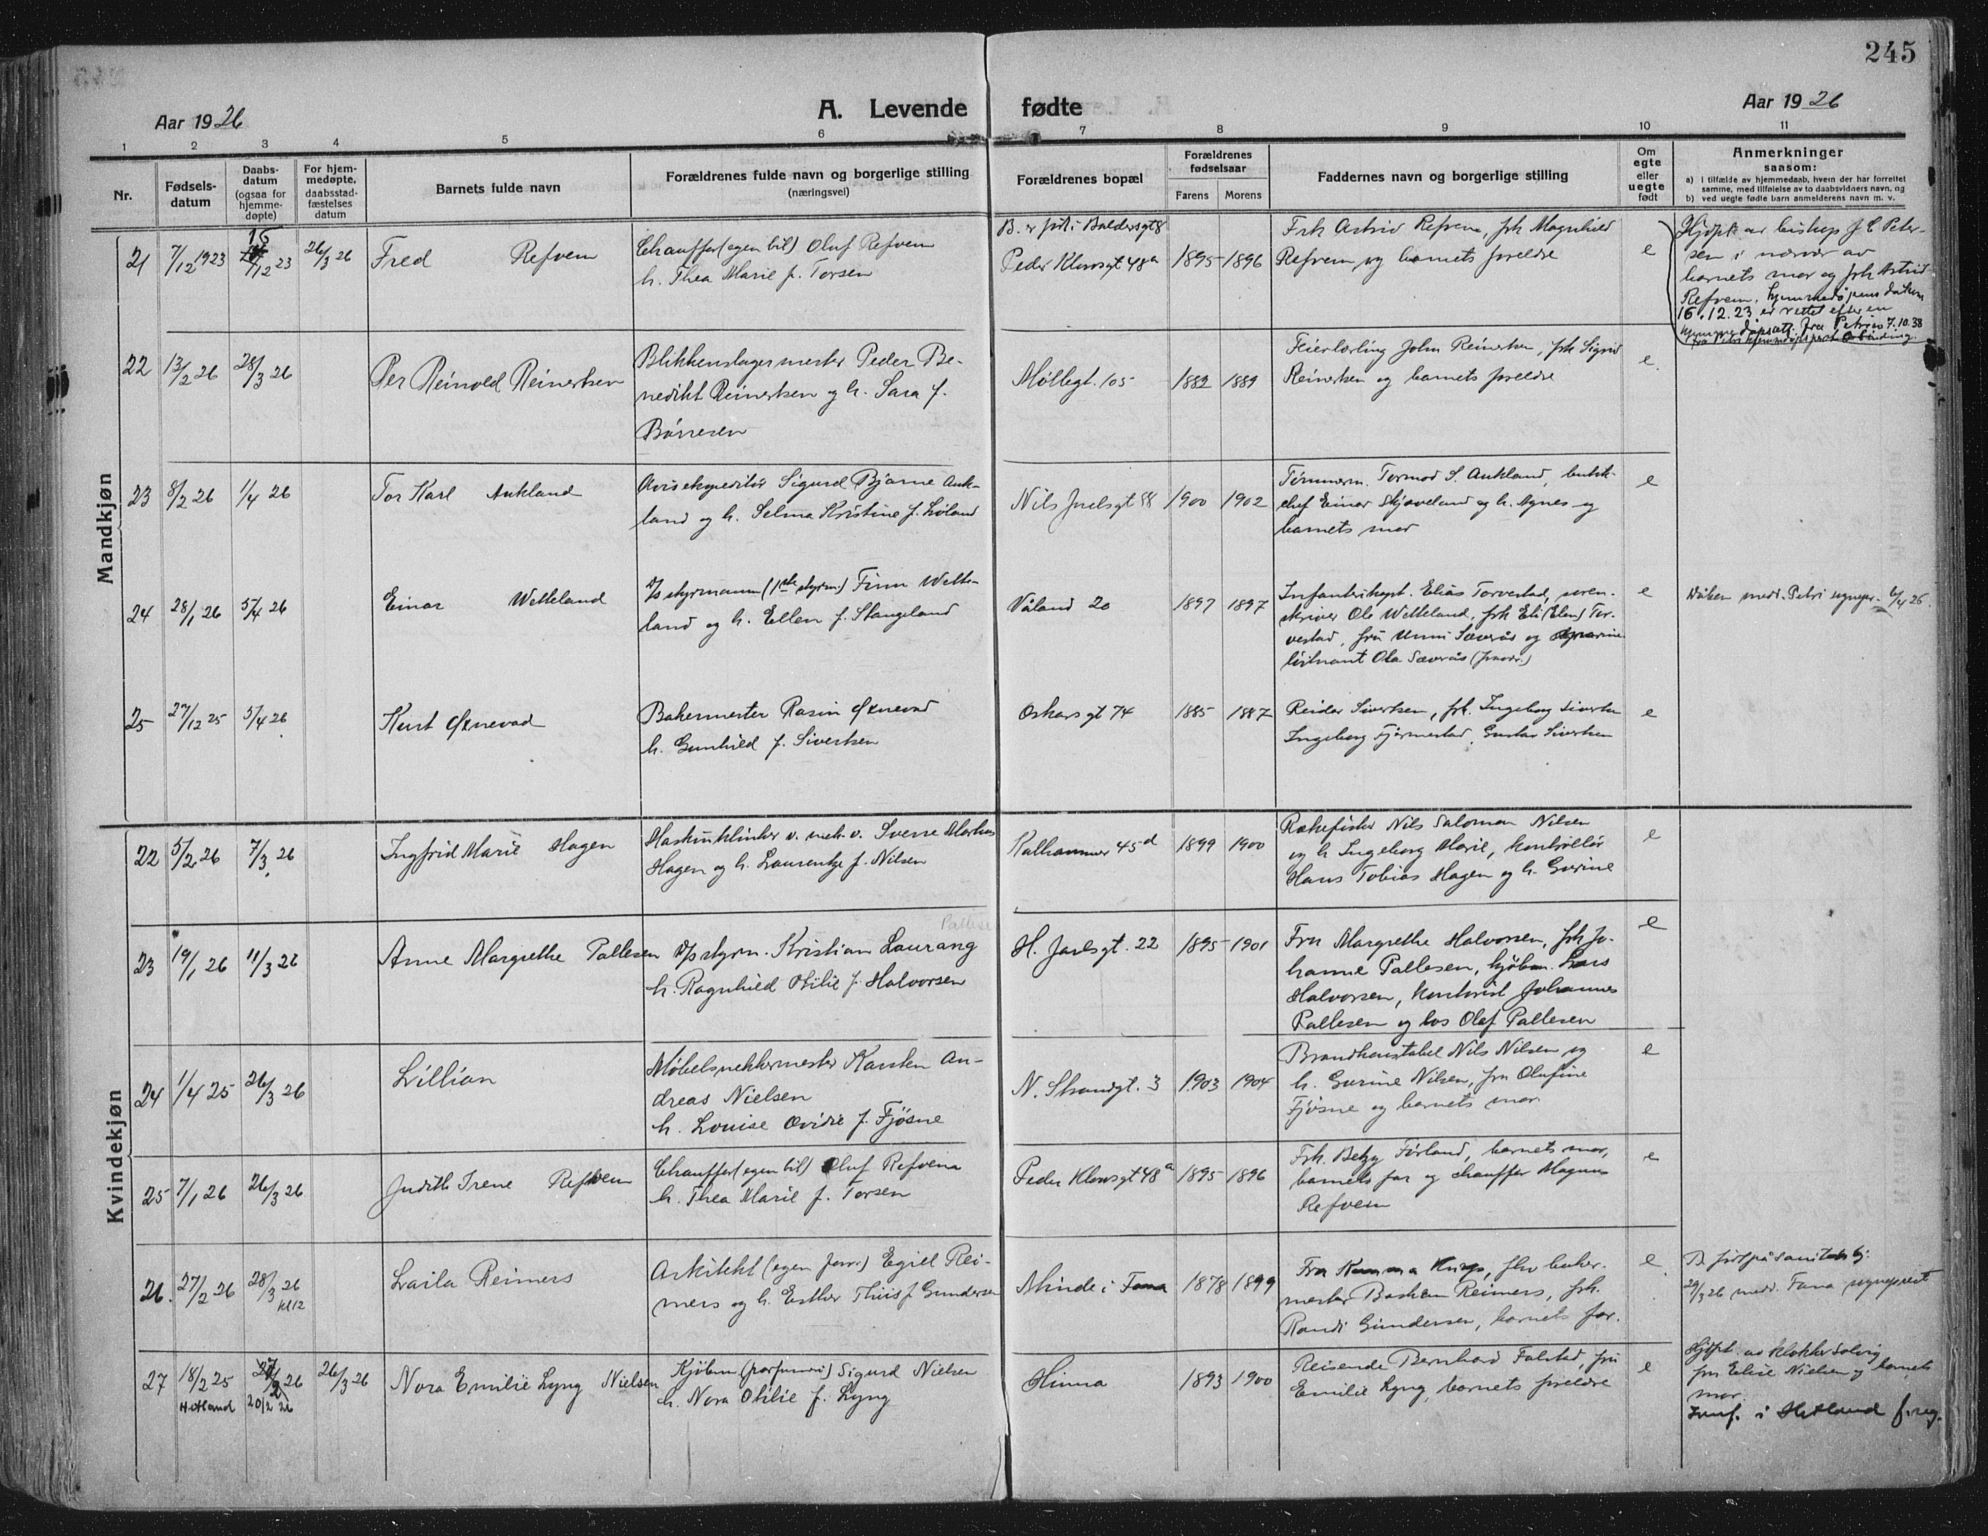 245
Aar 1926
A. Levende fødte
Aar 1926
1 2 3 4 5 6 7 8 9 10 11
Nr.
Fødsels-
datum
Daabs-
datum
(ogsaa for
hjemme-
døpte)
For hjem-
medøpte,
daabsstad-
fæstelses
datum
Barnets fulde navn
Forældrenes fulde navn og borgerlige stilling
(næringsvei)
Forældrenes bopæl
Forældrenes
fødselsaar
Farens Morens
Faddernes navn og borgerlige stilling
Om
egte
eller
uegte
født
Anmerkninger
saasom:
a) i tilfælde av hjemmedaab, hvem der har forrettet
samme, med tilføielse av to daabsvidners navn, og
b) ved uegte fødte barn anmelderens navn m. v.
Mandkjøn
21 7/12 1923 15/12 23 26/3 26 Fred Refvem
Chauffør (egen bil) Oluf Refvem
h. Thea Marie f. Torsen
B. er født i Baldersgt 8
Peder Klowsgt 48a 1895 1896
Frk Astrid Refvem, frk Magnhild
Refvem og barnets foreldre
e
Hjdpt av biskop J. C. Peter-
sen i nærvær av
barnets mor og frk Astrid
Refvem. Hjemmedåpens datum
15.12.23 er rettet efter en
22 13/2 26 28/3 26 Per Reinold Reinertsen
Blikkenslagermester Peder Be-
nedikt Reinertsen og h. Sara f.
Børresen
Møllegt. 105 1882 1889
Feierlærling John Reinertsen, frk Sigrid
Reinertsen og barnets foreldre
e.
23 8/2 26 1/4 26 Tor Karl Aukland
Avisekspeditør Sigurd Bjarne Auk-
land og h. Selma Kristine f. Løland
Nils Juelsgt 58 1900 1902
Tømmerm. Tormod S. Aukland, butik-
chef Einar Skjæveland og h. Agnes og
barnets mor
e
24 28/1 26 5/4 26 Einar Wetteland
D/s styrmann (1ste styrm.) Finn Wette-
land og h. Ellen f. Stangeland
Våland 20 1897 1897
Infanterikapt. Elias Torvestad, soren-
skriver Ole Wetteland, frk Eli (Elen) Tor-
vestad, fru Unni Sæverås og
løitnant Ola Sæverås
e
Dåben medd. Petri sognepr. 6/4 26.
25 27/12 25 5/4 26 Kurt Øxnevad
Bakermester Rasin Øxnevad
h. Gunhild f. Sivertsen
Oskarsgt 74 1885 1887
Reidar Sivertsen, frk. Ingeborg Sivertsen
Ingeborg Fjermestad, Gustav Sivertsen
e
Kvindekjøn
22 5/2 26 7/3 26 Ingfrid Marie Hagen
Maskinklinker v. mek. v. Sverre Markus
Hagen og h. Laurentze f. Nilsen
Kalhammer 45d 1899 1900
Rækefisker Nils Salomon Nilsen
og h Ingeborg Marie, kontrollør
Hans Tobias Hagen og h. Gurine
e
23 19/1 26 11/3 26 Anne Margrethe Pallesen
D/s styrm. Kristian Laurang
h. Ragnhild Otilie f. Halvorsen
H. Jarlsgt. 22 1895 1901
Fru Margrethe Halvorsen, frk Jo-
hanne Pallesen, kjøbm. Lars
Halvorsen, kontorist Johannes
Pallesen og los Olaf Pallesen
e
24 1/4 25 26/3 26 Lillian
Møbelsnekkermester Karsten An-
dreas Nielsen
h. Louise Ovidie f. Fjøsne
N. Strandgt. 3 1903 1904
Brandkonstabel Nils Nilsen og
h. Gurine Nilsen, fru Olufine
Fjøsne og barnets mor.
e
25 7/1 26 26/3 26 Judith Irene Refvem
Chauffør (egen bil) Oluf Refvem
h. Thea Marie f. Torsen
Peder Klowsgt 48a 1895 1896
Frk. Betzy Førland, barnets mor,
barnets far og chauffør Magnus
Refvem
e
26. 27/2 26 28/3 26 kl 12 Laila Reimers
Arkitekt (egen forr.) Egill Rei-
mers og h. Esther Thiis f. Gundersen
Minde i Fana 1878 1899
Fru
mester Bastian Reimers, frk.
Randi Gundersen, barnets far.
e
B. født på sanitets
29/3 26 medd. Fana sogneprest
27 18/2 25 Hetland 20/2 26 26/3 26 Nora Emilie Lyng Nielsen
Kjøbm (parfumeri) Sigurd Nielsen
h. Nora Otilie f. Lyng
Hinna 1893 1900
Reisende Bernhard Falstad, fru
Emilie Lyng, barnets foreldre
e
Hjdpt. av klokker Solvig
fru Elise Nielsen og barnets
mor.
Innf. i Hetland f. reg.